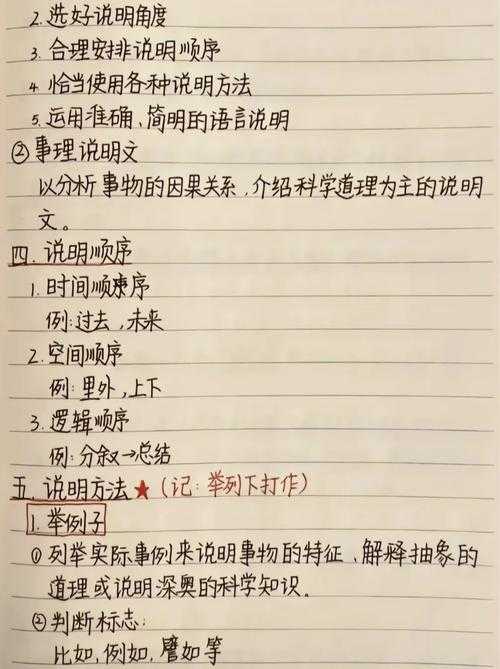 2. 选好说明角度
3. 合理安排说明顺序
4. 恰当使用各种说明方法
5. 运用准确、简明的语言说明
②事理说明文
以分析事物的因果关系,介绍科学道理为主的说明
文。
四. 说明顺序
1. 时间顺序
例:过去,未来
2. 空间顺序
例:里外,上下
3. 逻辑顺序
例:分叙→总结
五. 说明方法★(记:举列下打作)
1. 举例子
①列举实际事例来说明事物的特征、解释抽象的
道理或说明深奥的科学知识。
②判断标志:
比如,例如,譬如等